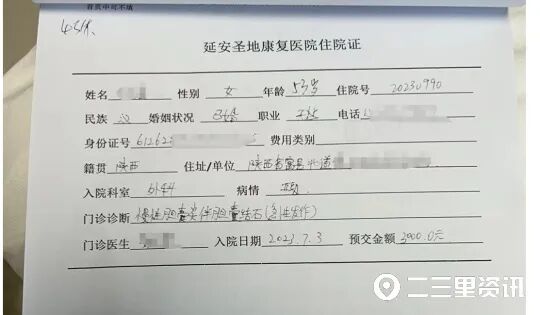 首页中可不填
延安圣地康复医院住院证
姓名 性别 女 年龄 53岁 住院号 20230990
民族 汉 婚姻状况 已婚 职业 电话
身份证号 61262 费用类别
籍贯 陕西 住址/单位 陕西省富县
入院科室 病情
门诊诊断 慢性胆囊炎伴胆囊结石(急性发作)
门诊医生 入院日期 2023.7.3 预交金额 3000.0元
二三里资讯